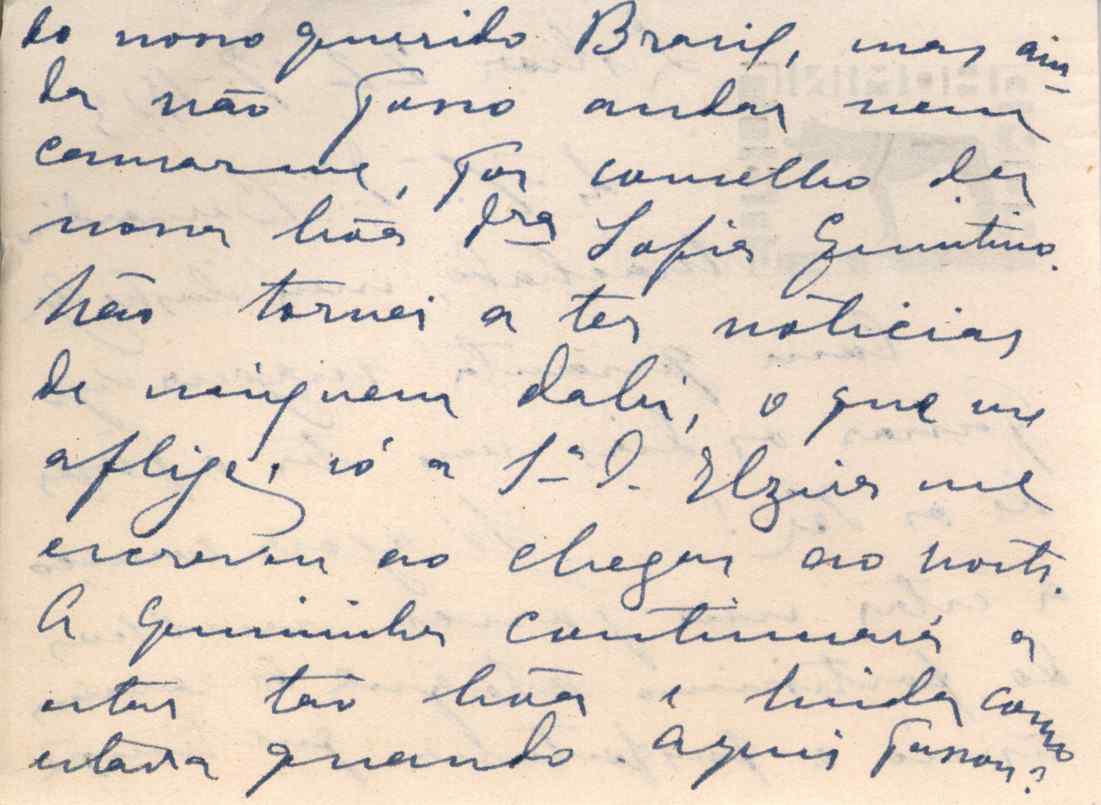 do nosso querido Brasil, mas ain-
da não posso andar nem
cansarme, por conselho da
nossa bôa Dra Sofia Quintino.
Não tornei a ter noticias
de ninguem dahi, o que me
aflige, só a Sª D. Elzira me
escreveu ao chegar ao norte.
A Quininha continuará a
estar tão bôa e linda como
estava quando aqui passou?